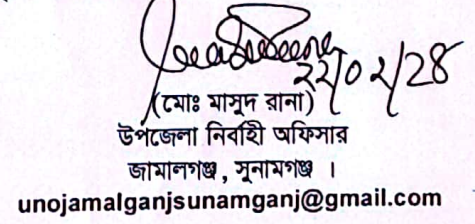 ২২/০২/২৪
(মোঃ মাসুদ রানা)
উপজেলা নির্বাহী অফিসার
জামালগঞ্জ, সুনামগঞ্জ ।
unojamalganjsunamganj@gmail.com